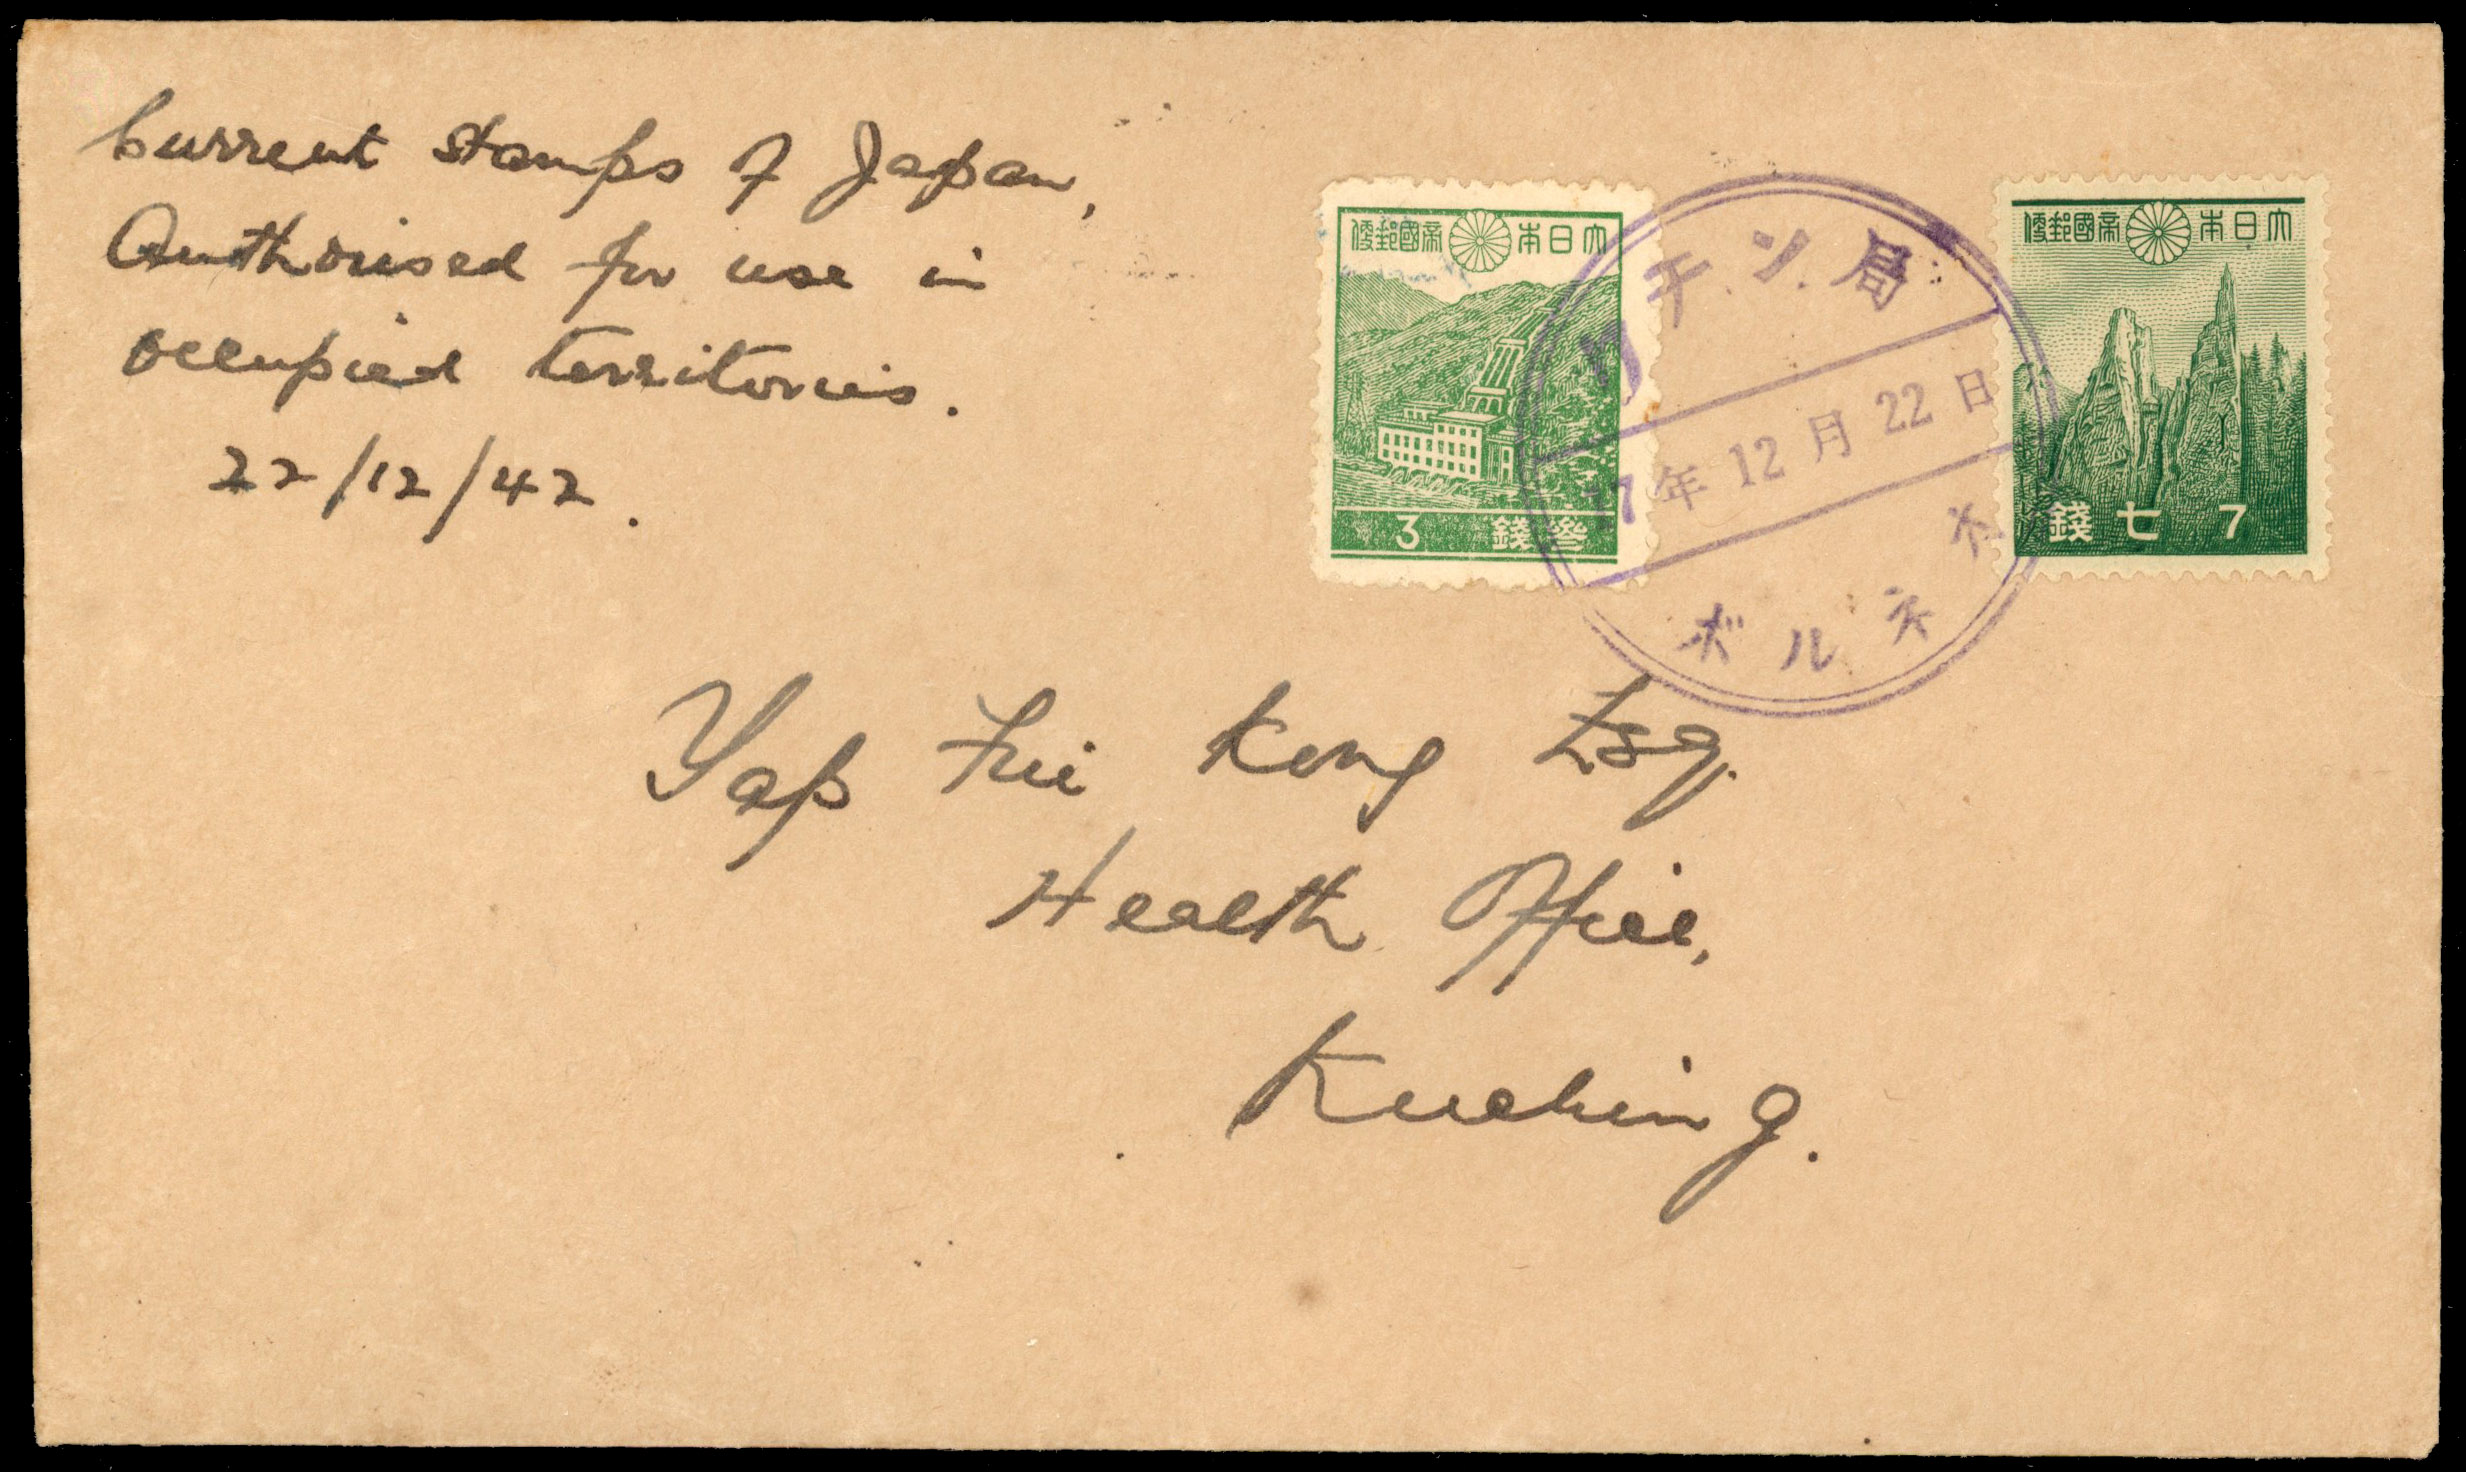 Current stamps of Japan,
Authorised for use in
occupied territories.
22/12/42.
便郵國帝 本日大
3 錢參
便郵國帝 本日大
錢七 7
クチン局
17年12月22日
ボルネオ
Yap Fui Kong Esq.
Health Office,
Kuching.